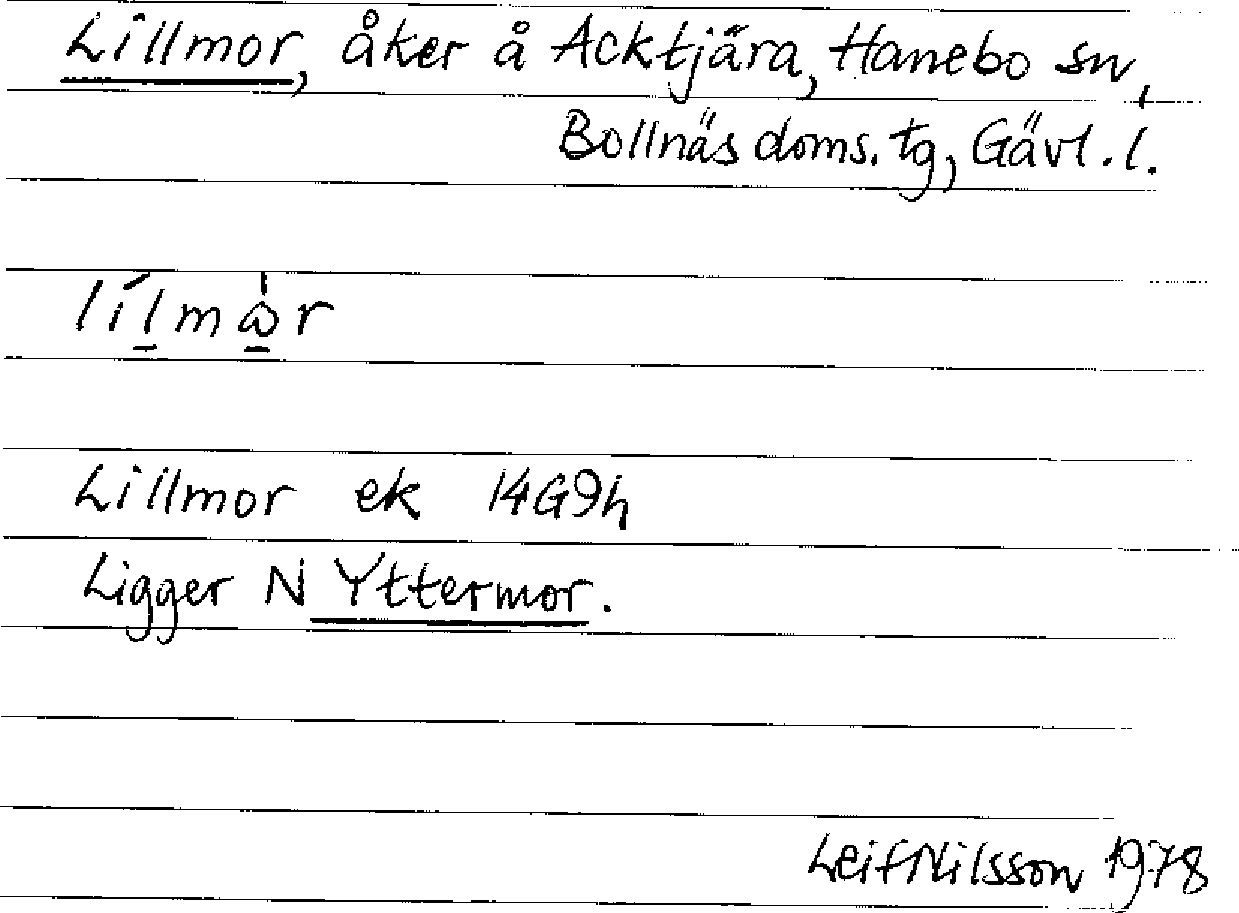 Lillmor, åker å Acktjära, Hanebo sn,
Bollnäs doms. tg, Gävl. l.
lílmὼr
Lillmor ek 14G9h
Ligger N Yttermor.
Leif Nilsson 1978